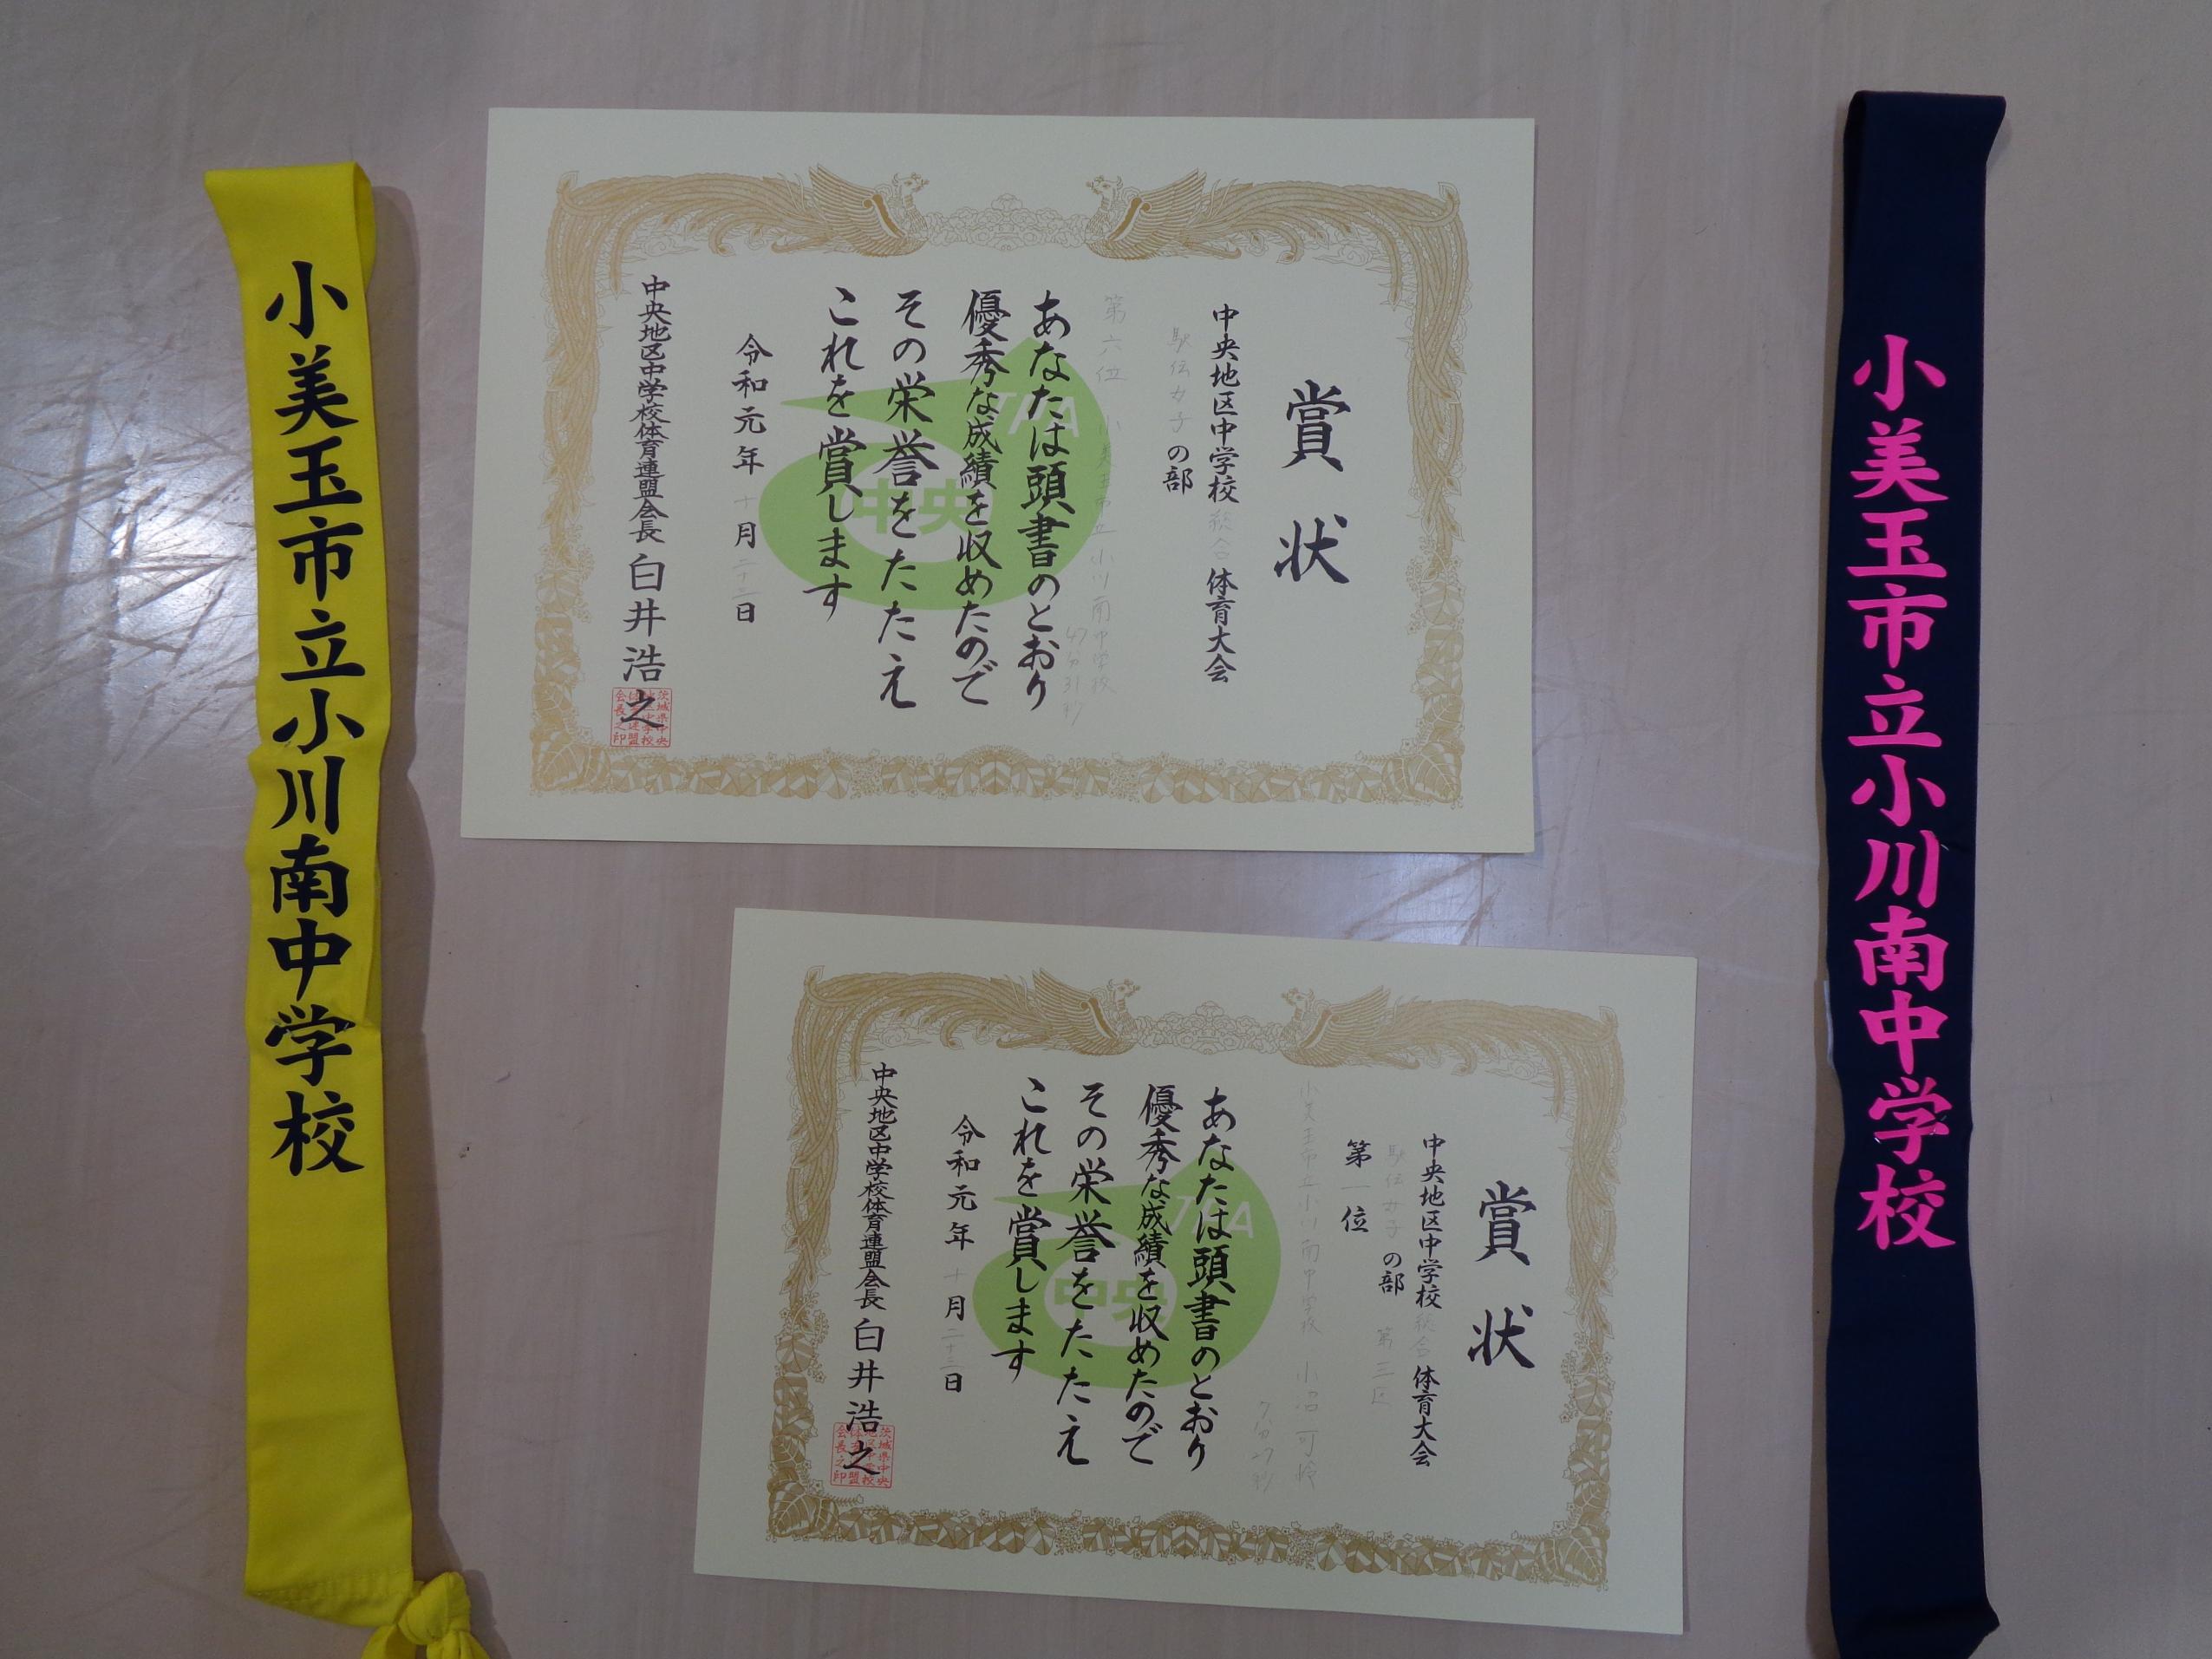 小美玉市立小川南中学校
賞状
中央地区中学校総合体育大会
駅伝女子の部
第六位 小美玉市立小川南中学校
47分31秒
あなたは頭書のとおり
優秀な成績を収めたので
その栄誉をたたえ
これを賞します
令和元年十月二十三日
中央地区中学校体育連盟会長 白井浩之
TAA
中央
賞状
中央地区中学校総合体育大会
駅伝女子の部 第三区
第一位
小美玉市立小川南中学校
7分27秒
あなたは頭書のとおり
優秀な成績を収めたので
その栄誉をたたえ
これを賞します
令和元年十月二十三日
中央地区中学校体育連盟会長 白井浩之
中央
小美玉市立小川南中学校